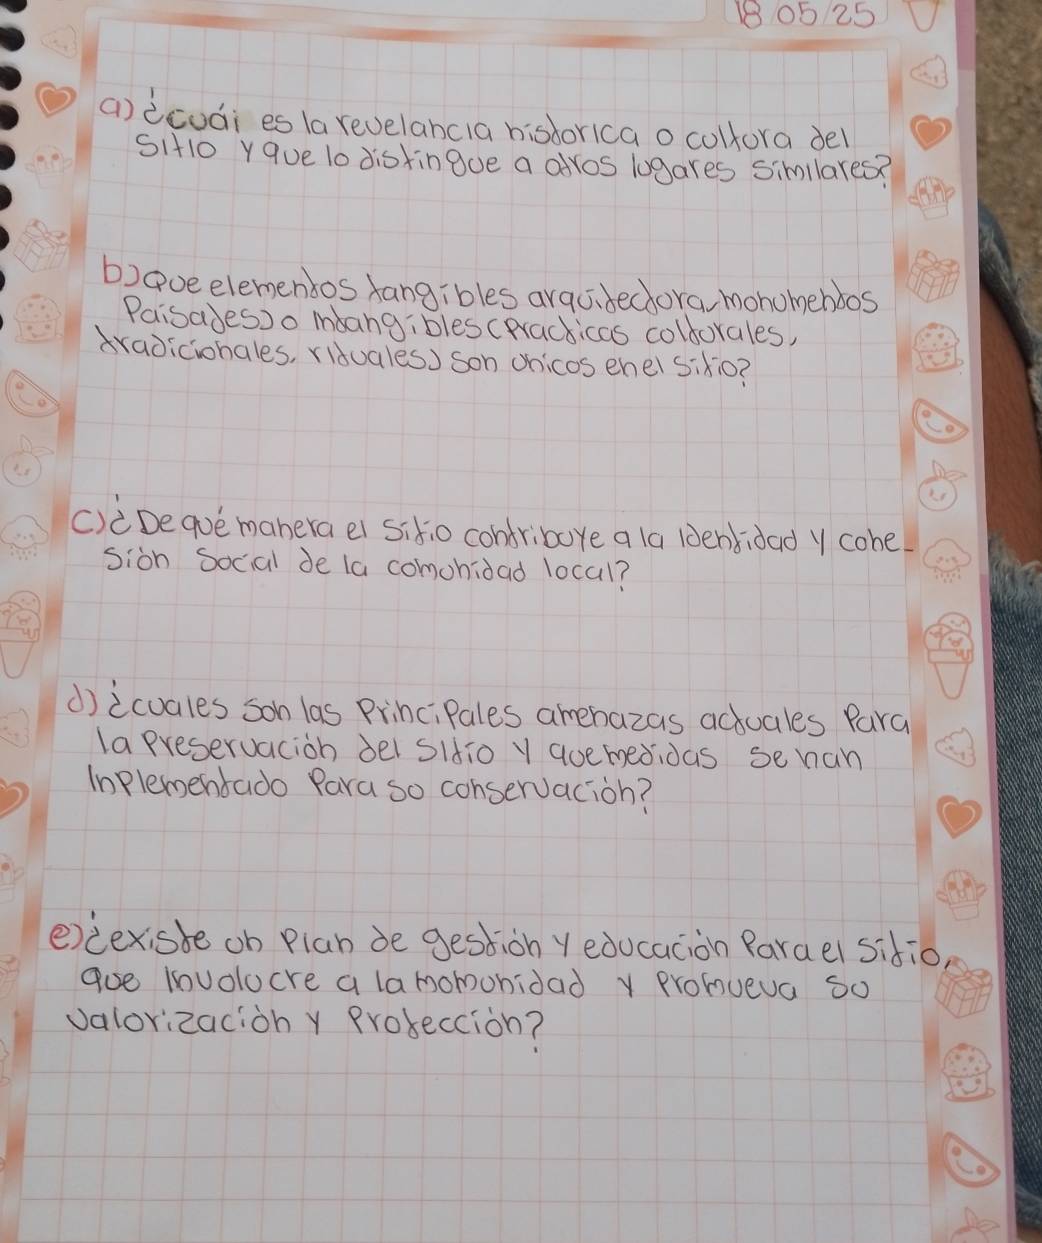 18/05/25
a) ¿cuái es la revelancia historica o coltora del
sitio y que lo distingue a otros lugares similares?
b) Que elementos tangibles arquitectora, monumentos
Paisajes) o intangibles (Practicas coltorales,
tradicionales. rituales) son unicos en el sitio?
c) ¿De qué manera el sitio contriboye a la identidad y cohe-
sión social de la comunidad local?
d) ¿cuales son las Principales amenazas actuales Para
la Preservación del sitio y que medidas se han
inplementado Para so conservación?
e) ¿existe un Plan de gestión y educación Para el sitio,
que involocre a la momunidad y Promueva so
valorización y Protección?